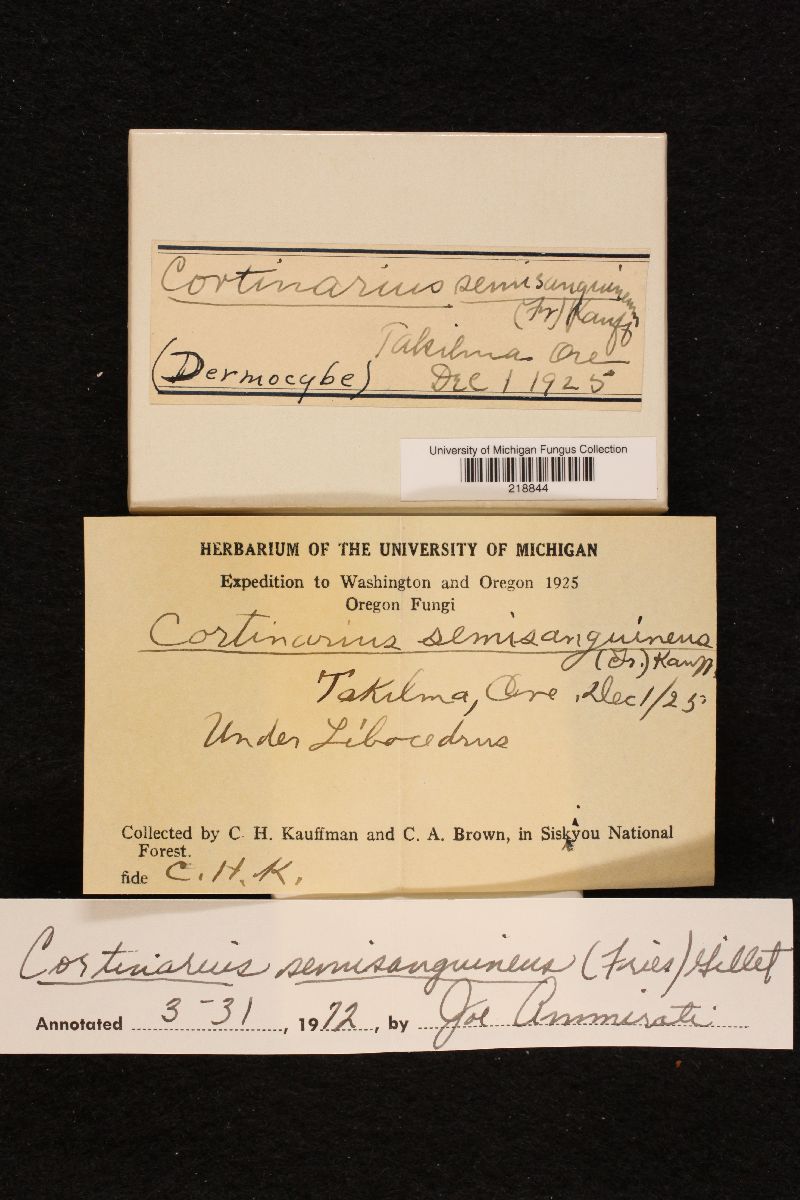 Cortinarius semisanguineus
(Fr) Kauff
Takilma Ore
(Dermocybe) Dec 1 1925
University of Michigan Fungus Collection
218844
HERBARIUM OF THE UNIVERSITY OF MICHIGAN
Expedition to Washington and Oregon 1925
Oregon Fungi
Cortinarius semisanguineus
(Fr.) Kauff.
Takilma, Ore. Dec 1/25
Under Libocedrus
Collected by C. H. Kauffman and C. A. Brown, in Siskyou National
Forest.
fide C. H. K.
Cortinarius semisanguineus (Fries) Gillet
Annotated 3-31, 1972, by Joe Ammirati